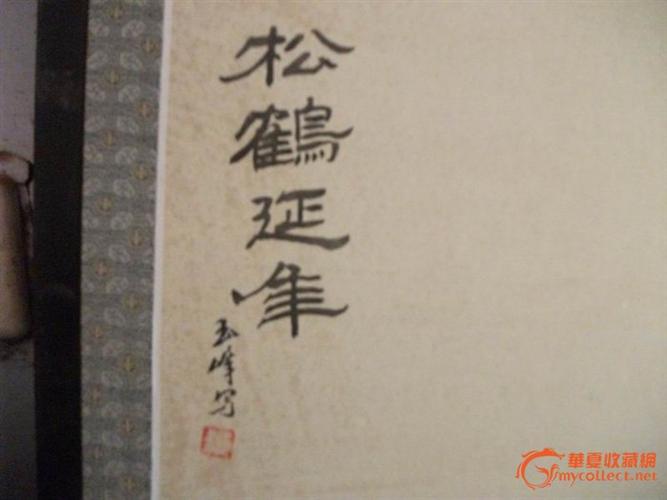 松鶴延年
玉峰写
華夏收藏網
mycollect.net